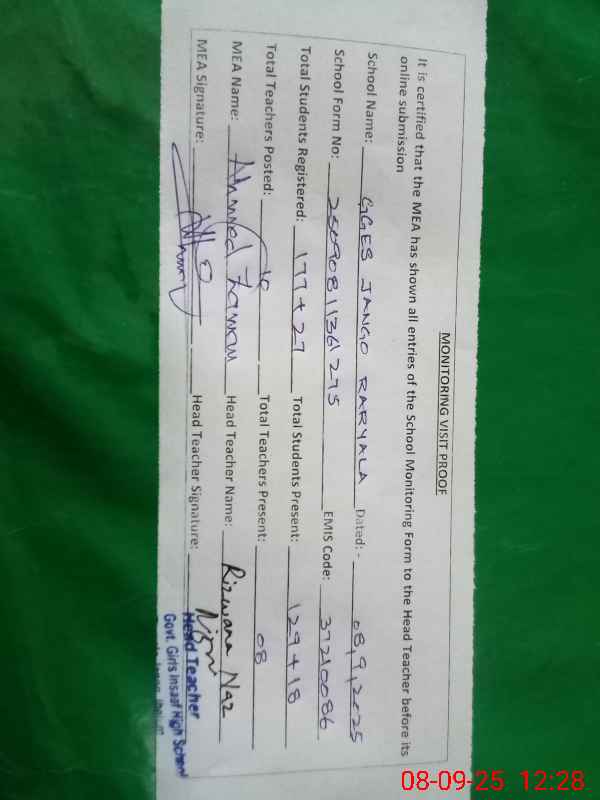 MONITORING VISIT PROOF
It is certified that the MEA has shown all entries of the School Monitoring Form to the Head Teacher before its
online submission
School Name: GGES JANGO RARYALA Dated: - 08,9,2025
School Form No: 25090811361275 EMIS Code: 37210086
Total Students Registered: 177 + 27 Total Students Present: 129 + 18
Total Teachers Posted: Total Teachers Present: 08
MEA Name: Ahmed Head Teacher Name: Rizwana Naz
MEA Signature: Head Teacher Signature:
Head Teacher
Govt. Girls Insaaf High School
08-09-25 12:28